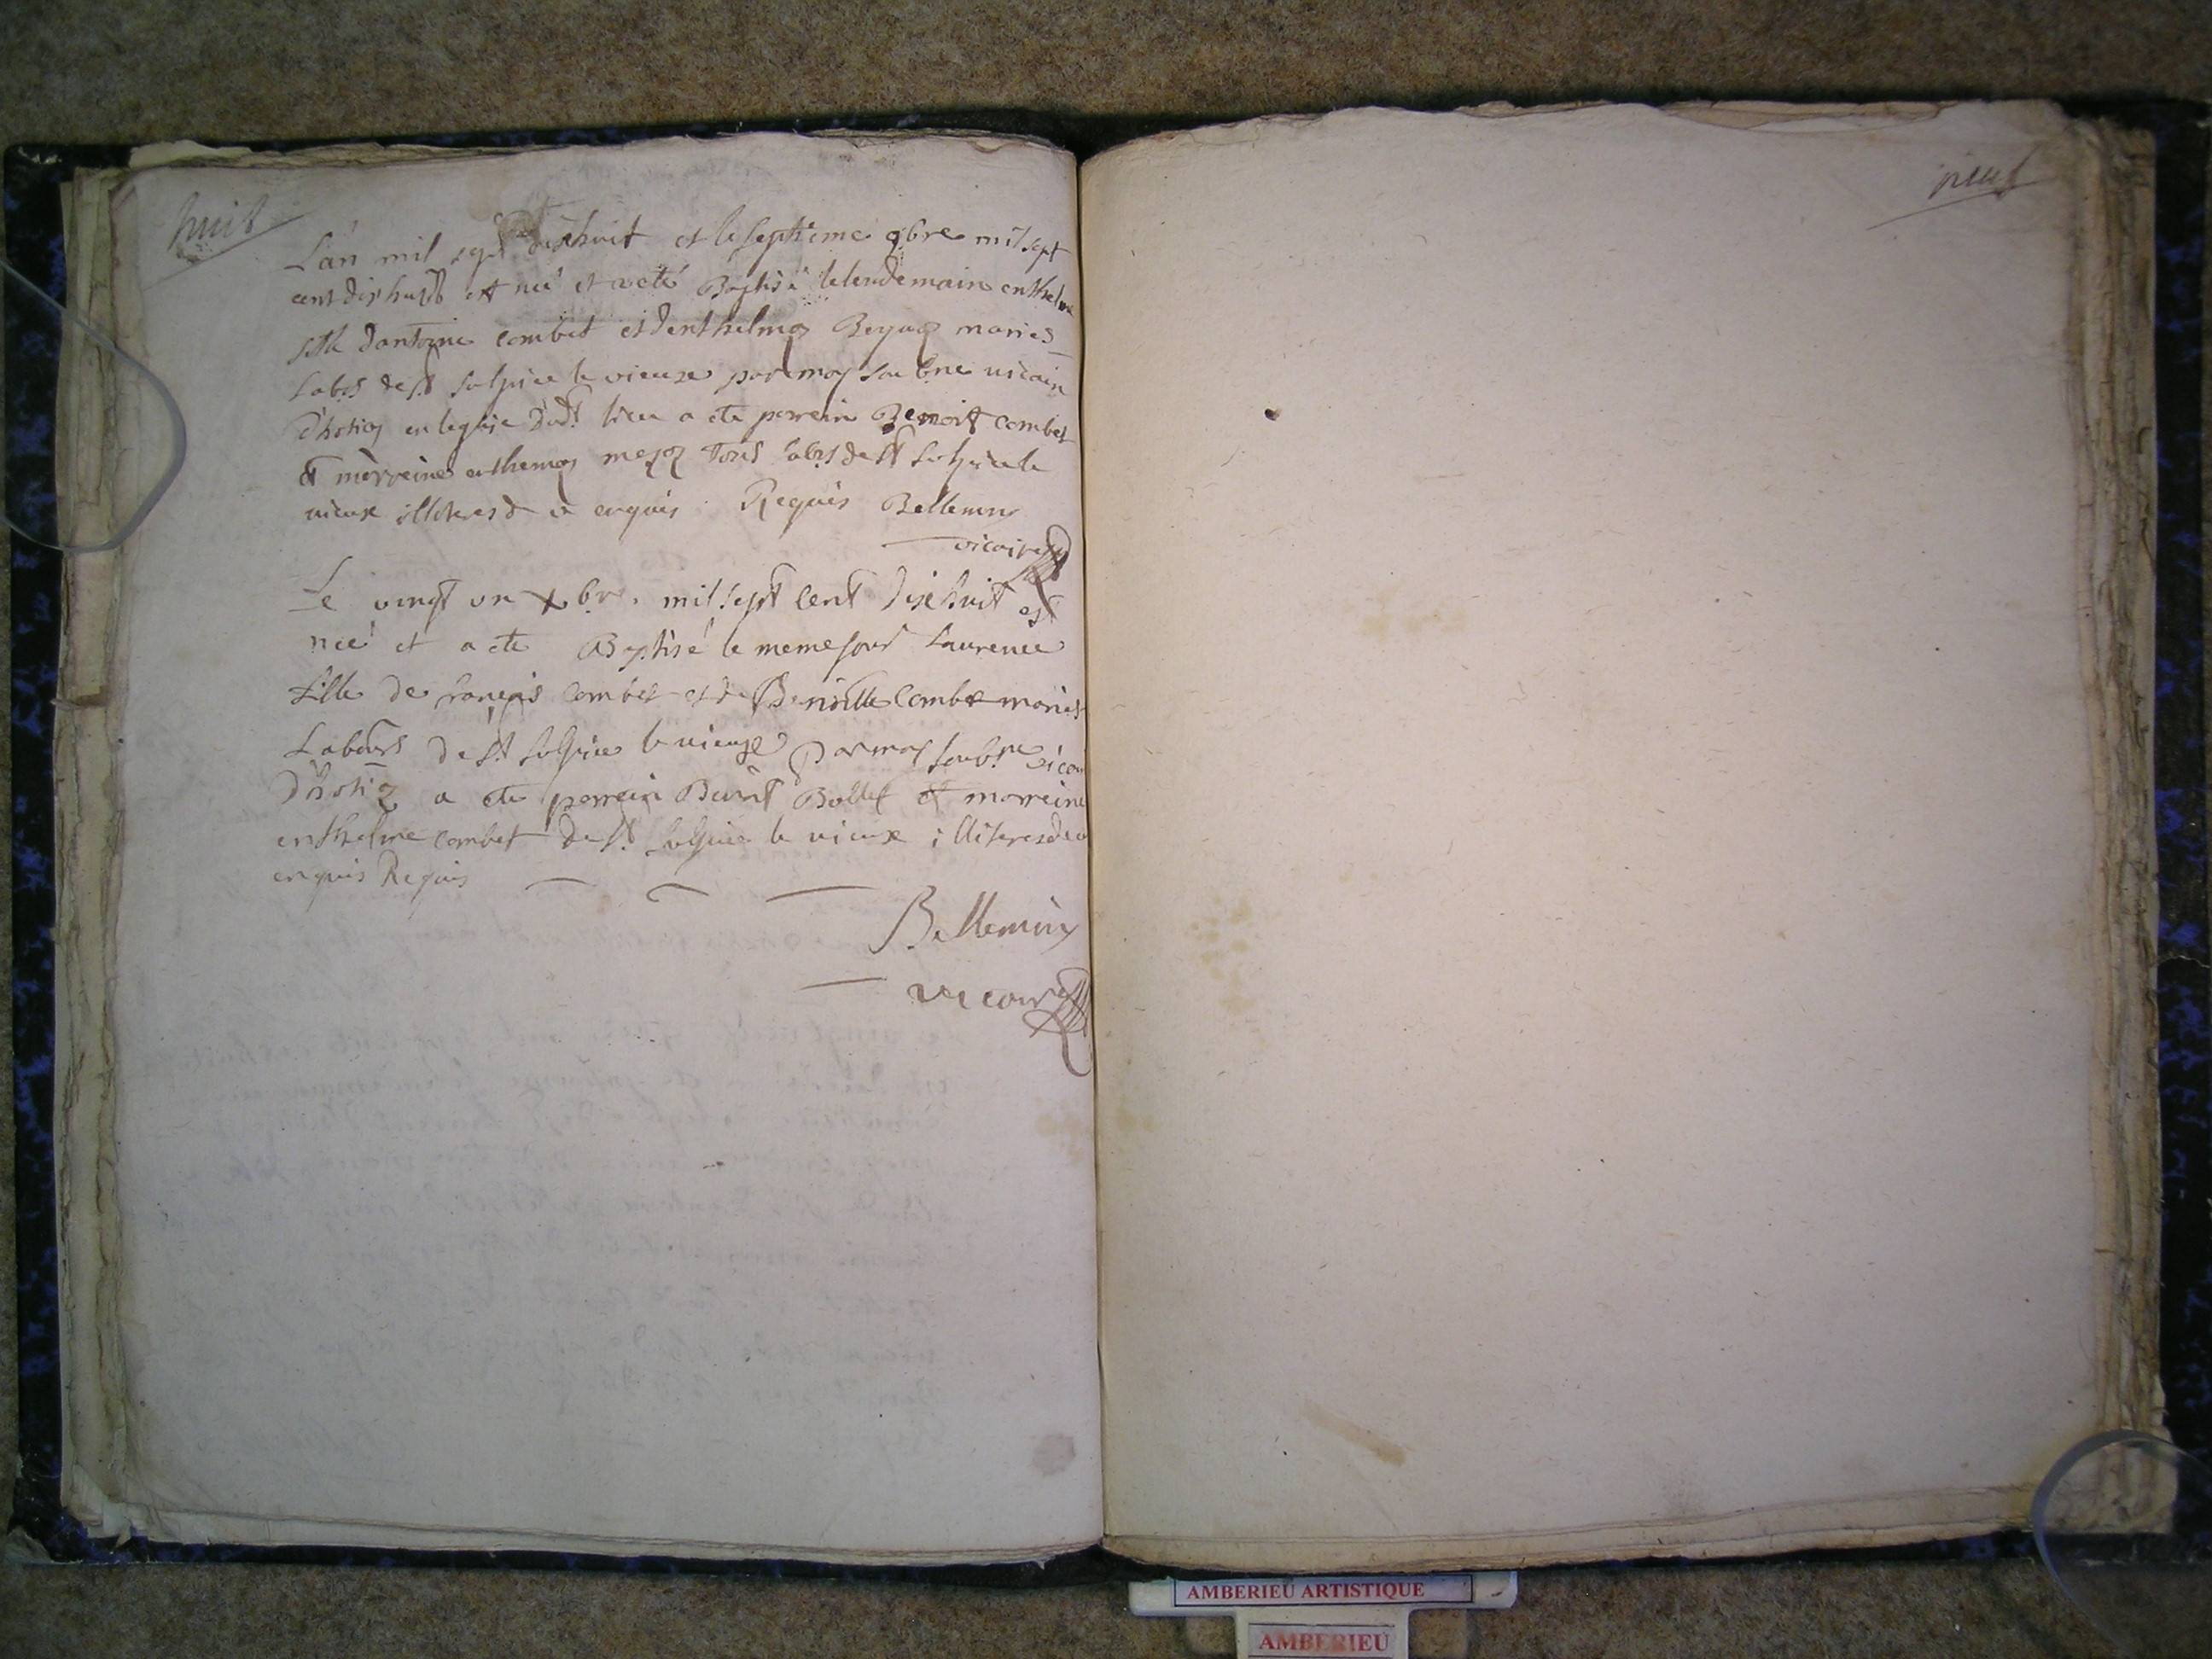 huit
L'an mil sept dixhuit et le septieme 9bre mil sept
cent dixhuit est neé et a eté Baptisé le lendemain enthelme
fille dantoine combet et denthelmoz mariés
Labrs de st sulpice le vieux par moy soubne vicaire
d'hotioz en leglise dud.t lieu a ete perrein Benoit combet
et merreine enthemoz tous labrs de st sulpice le
vieux illiteres de ce enquis Requis Bellemin
vicaire
Le vingt un xbre. mil sept cent dixhuit est
neé et a ete Baptisé le meme jour Laurence
fille de françois combet et de combet mariés
Labours de st sulpice le vieux par moy soubne vicai
d'hotioz a ete perrein Benoit Bollet et marreine
enthelme combet de st sulpice le vieux illiteres de ce
enquis Requis
Bellemin
vicaire
neuf
AMBERIEU ARTISTIQUE
AMBERIEU